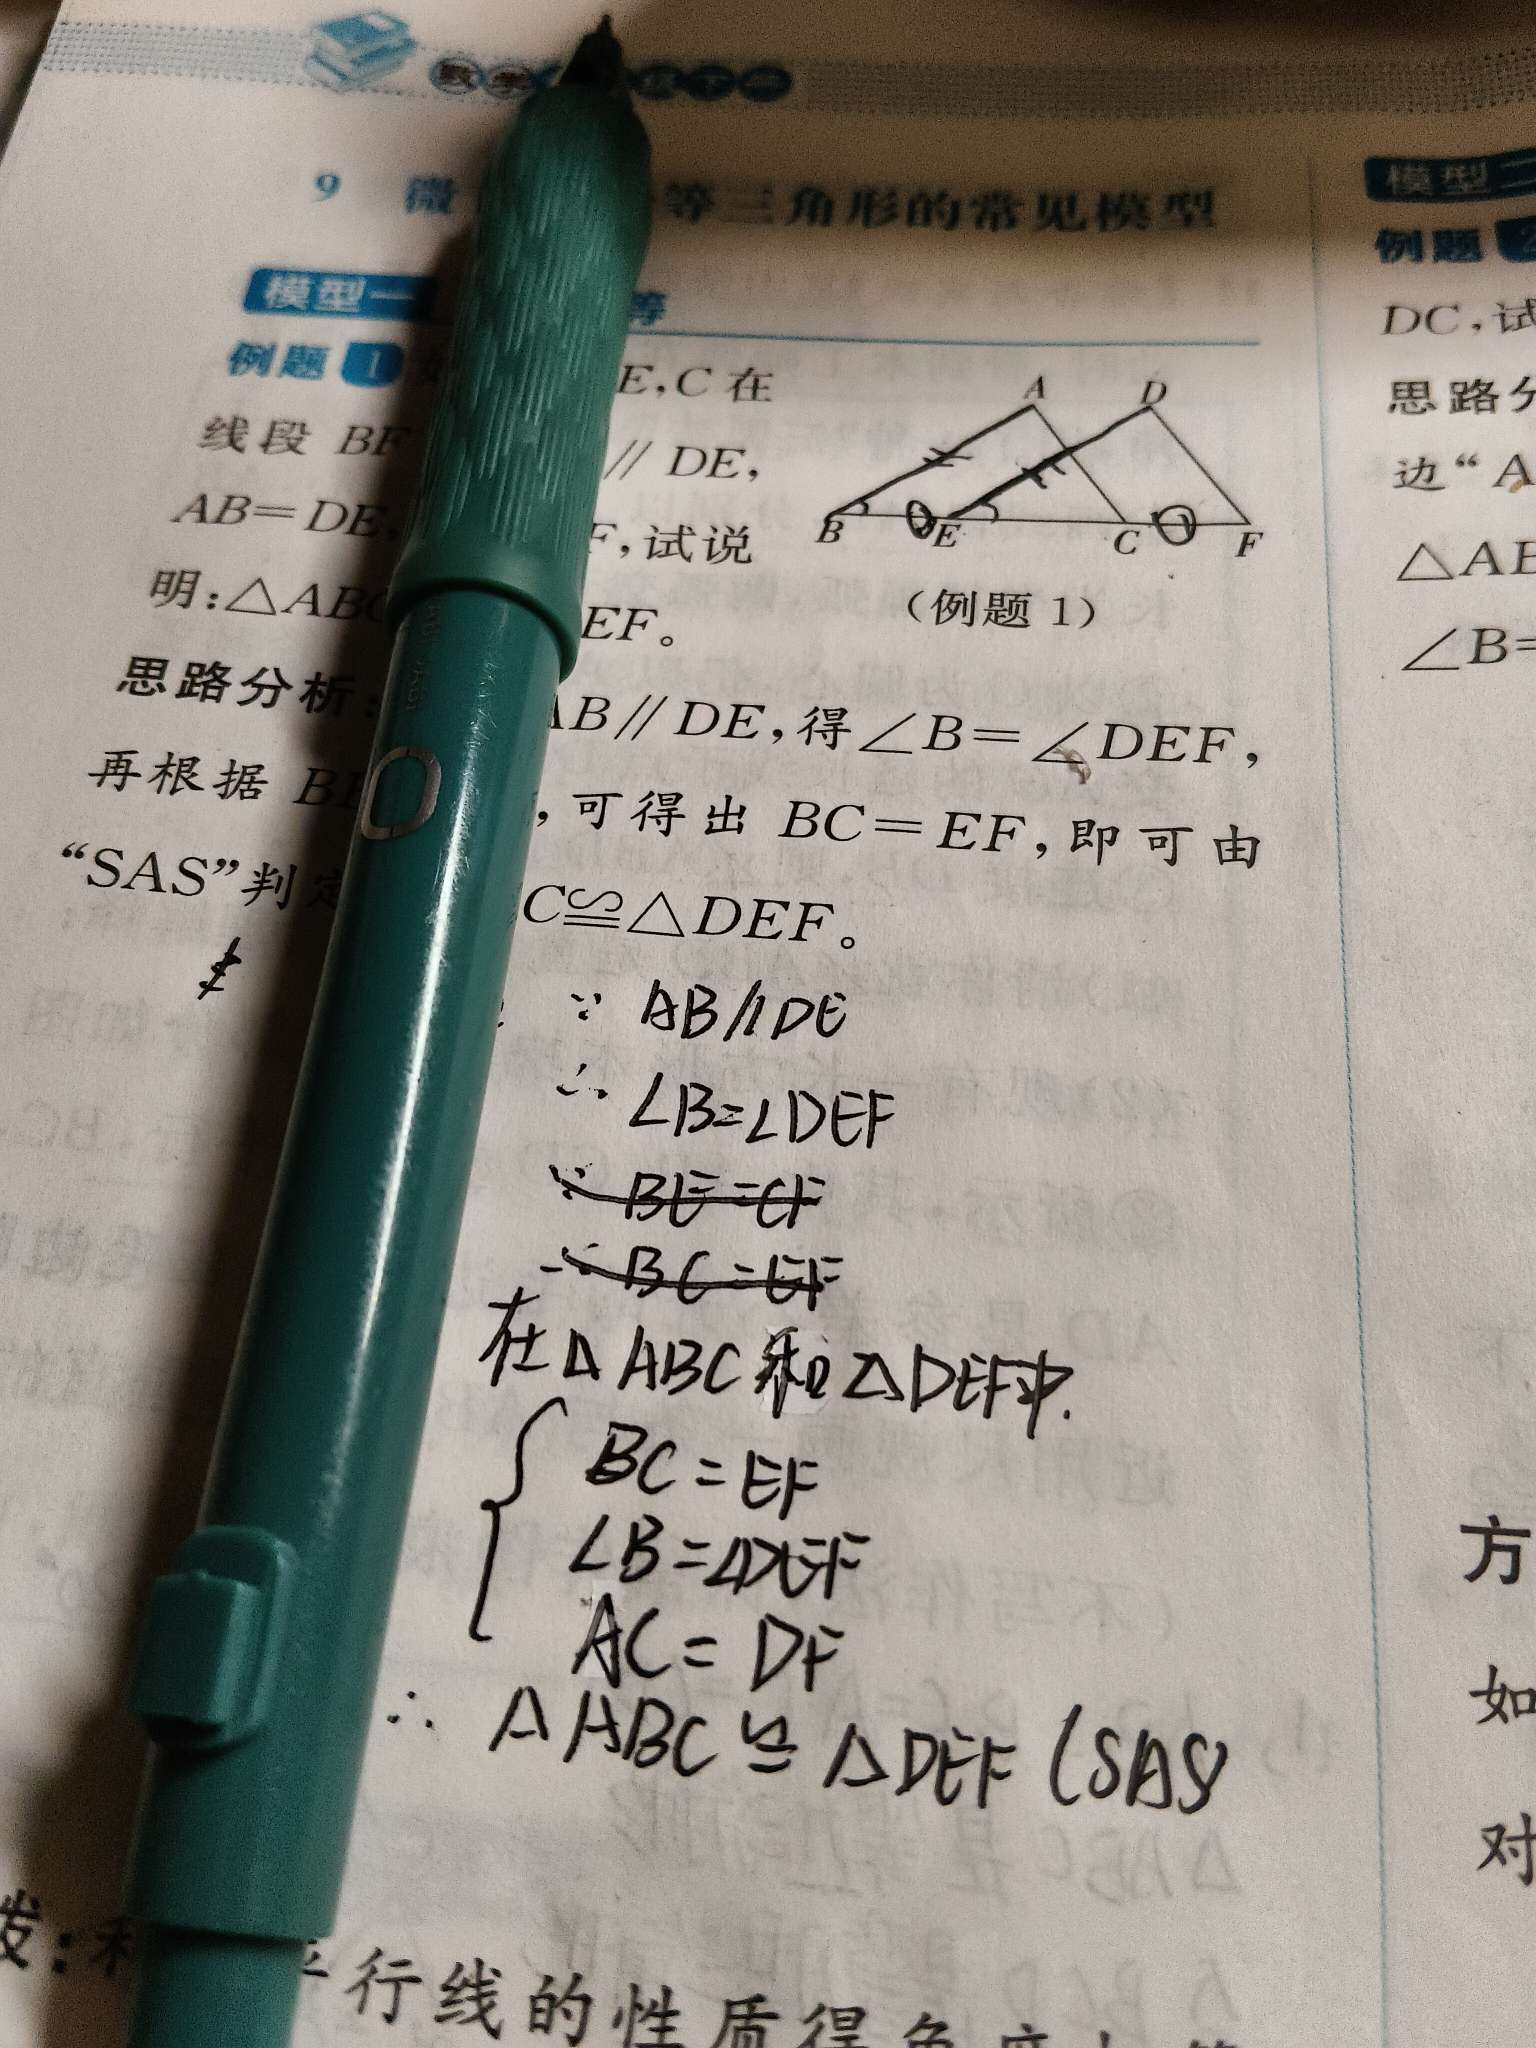 数学
9 微 等三角形的常见模型
模型一 等
例题 1 E,C 在
线段 BF ∥ DE,
AB=DE, F,试说
明:△ABC EF。
A D
B E C F
(例题 1)
思路分析: AB∥DE,得∠B=∠DEF,
再根据 BE ,可得出 BC=EF,即可由
“SAS”判定 C≌△DEF。
∵ AB∥DE
∴ ∠B=∠DEF
∵ BE=CF
∴ BC=EF
在△ABC和△DEF中.
BC=EF
∠B=∠DEF
AC=DF
∴ △ABC≌△DEF (SAS)
拨: 平行线的性质得角
模型二
例题 2
DC,试
思路分
边“A
△AB
∠B=
方
如
对